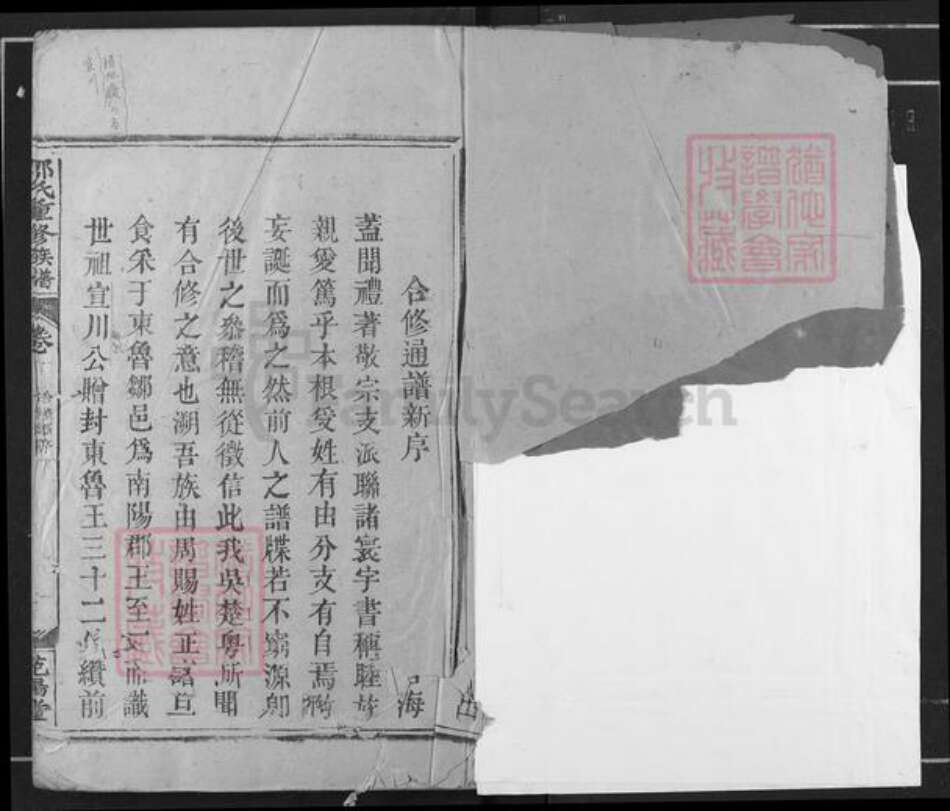 合修通譜新序
蓋聞禮著敬宗支派聯諸寰宇書稱睦族
親愛篤乎本根受姓有由分支有自焉
妄誕而爲之然前人之譜牒若不窮源卽
後世之參稽無從徵信此我吳楚粤所
有合修之意也溯吾族由周賜姓正
食采于東魯鄒邑爲南陽郡王至
世祖宣川公贈封東魯王三十二纘前
氏重修族譜
卷
海
FamilySearch
譜學會
收藏